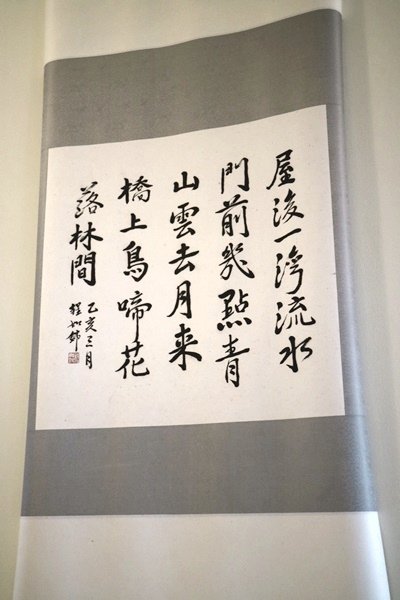 屋後一灣流水
門前幾點青
山雲去月来
橋上鳥啼花
落林間
乙亥三月